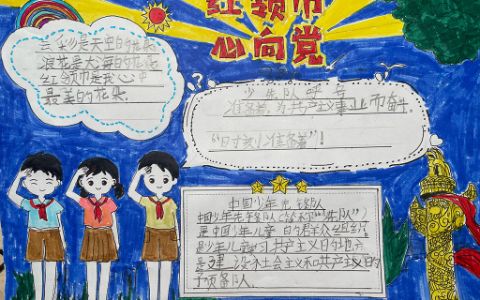 红领巾
心向党
云彩是天空的花朵
浪花是大海的花朵
红领巾是我心中
最美的花朵
少先队呼号
准备着,为共产主义事业而奋
"时刻准备着"!
中国少年先锋队
中国少年先锋队("少先队")
是中国少年儿童的群众组织
是少年儿童学习共产主义的地方
是建设社会主义和共产主义的
预备队